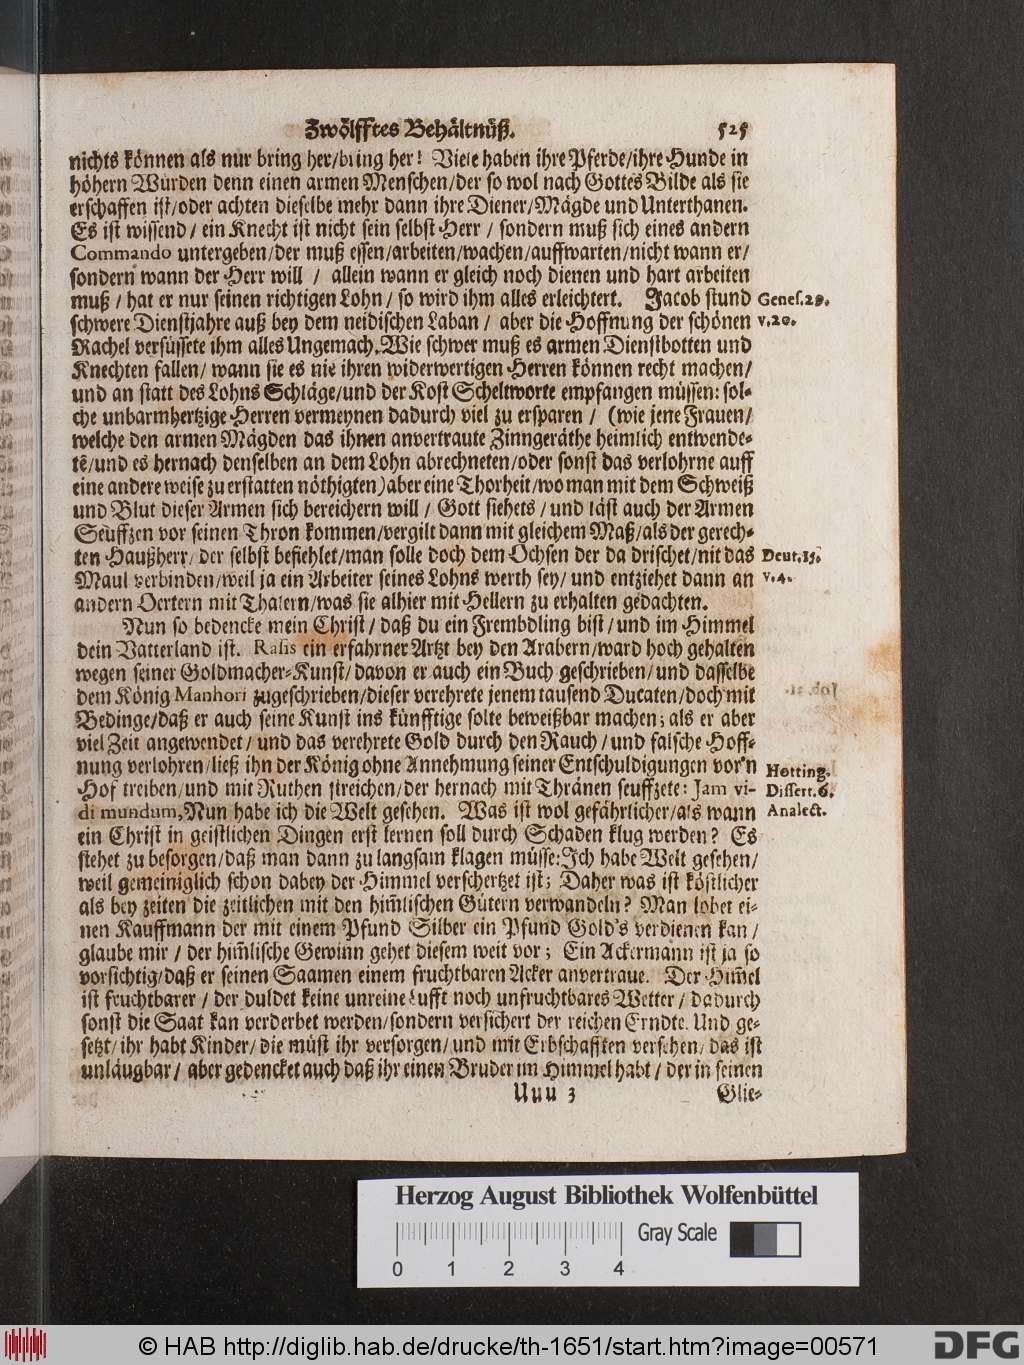 Zwölfftes Behältnüß. 525
nichts können als nur bring her/bring her! Viele haben ihre Pferde/ihre Hunde in
höhern Würden denn einen armen Menschen/der so wol nach Gottes Bilde als sie
erschaffen ist/oder achten dieselbe mehr dann ihre Diener/Mägde und Unterthanen.
Es ist wissend/ ein Knecht ist nicht sein selbst Herr / sondern muß sich eines andern
Commando untergeben/der muß essen/arbeiten/wachen/auffwarten/nicht wann er/
sondern wann der Herr will / allein wann er gleich noch dienen und hart arbeiten
muß / hat er nur seinen richtigen Lohn / so wird ihm alles erleichtert. Jacob stund Genes.29.
schwere Dienstjahre auß bey dem neidischen Laban / aber die Hoffnung der schönen v.20.
Rachel versüssete ihm alles Ungemach. Wie schwer muß es armen Dienstbotten und
Knechten fallen/ wann sie es nie ihren widerwertigen Herren können recht machen/
und an statt des Lohns Schläge/und der Kost Scheltworte empfangen müssen: sol-
che unbarmhertzige Herren vermeynen dadurch viel zu ersparen / (wie jene Frauen/
welche den armen Mägden das ihnen anvertraute Zinngeräthe heimlich entwende-
tē/und es hernach denselben an dem Lohn abrechneten/oder sonst das verlohrne auff
eine andere weise zu erstatten nöthigten) aber eine Thorheit/wo man mit dem Schweiß
und Blut dieser Armen sich bereichern will / Gott siehets / und läst auch der Armen
Seüffzen vor seinen Thron kommen/vergilt dann mit gleichem Maß/als der gerech-
ten Haußherr/ der selbst befiehlet/man solle doch dem Ochsen der da drischet/nit das Deut.15.
Maul verbinden/weil ja ein Arbeiter seines Lohns werth sey/ und entziehet dann an v.4.
andern Oertern mit Thalern/was sie alhier mit Hellern zu erhalten gedachten.
Nun so bedencke mein Christ/ daß du ein Frembdling bist/und im Himmel
dein Vatterland ist. Rasis ein erfahrner Artzt bey den Arabern/ward hoch gehalten
wegen seiner Goldmacher-Kunst/davon er auch ein Buch geschrieben/und dasselbe
dem König Manhori zugeschrieben/dieser verehrete jenem tausend Ducaten/doch mit
Bedinge/daß er auch seine Kunst ins künfftige solte beweißbar machen; als er aber
viel Zeit angewendet/ und das verehrete Gold durch den Rauch/und falsche Hoff-
nung verlohren/ließ ihn der König ohne Annehmung seiner Entschuldigungen vor'n Hotting.
Hof treiben/und mit Ruthen streichen/der hernach mit Thränen seuffzete: Jam vi- Dissert.6.
di mundum, Nun habe ich die Welt gesehen. Was ist wol gefährlicher/als wann Analect.
ein Christ in geistlichen Dingen erst lernen soll durch Schaden klug werden? Es
stehet zu besorgen/daß man dann zu langsam klagen müsse: Ich habe Welt gesehen/
weil gemeiniglich schon dabey der Himmel verschertzet ist; Daher was ist köstlicher
als bey zeiten die zeitlichen mit den him̄lischen Gütern verwandeln? Man lobet ei-
nen Kauffmann der mit einem Pfund Silber ein Pfund Gold's verdienen kan /
glaube mir / der him̄lische Gewinn gehet diesem weit vor; Ein Ackermann ist ja so
vorsichtig/daß er seinen Saamen einem fruchtbaren Acker anvertraue. Der Him̄el
ist fruchtbarer / der duldet keine unreine Lufft noch unfruchtbares Wetter / dadurch
sonst die Saat kan verderbet werden/sondern versichert der reichen Erndte. Und ge-
setzt/ ihr habt Kinder/ die müst ihr versorgen/ und mit Erbschafften versehen/ das ist
unläugbar / aber gedencket auch daß ihr einen Bruder im Himmel habt / der in seinen
Uuu 3 Glie-
Herzog August Bibliothek Wolfenbüttel
Gray Scale
0 1 2 3 4
© HAB http://diglib.hab.de/drucke/th-1651/start.htm?image=00571
DFG